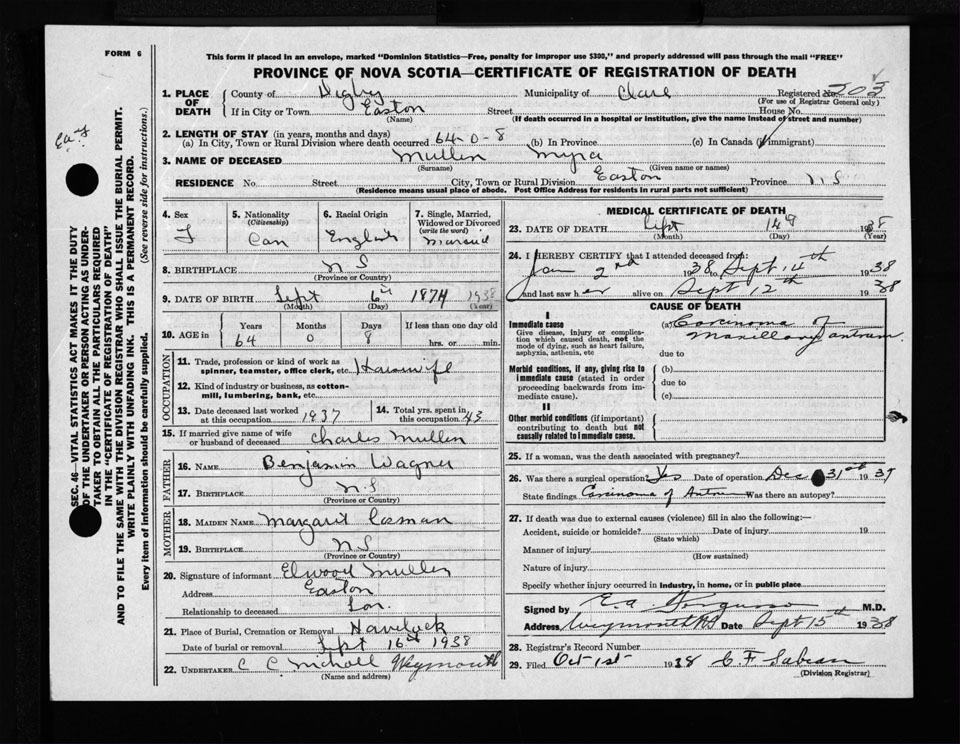 FORM 6
This form if placed in an envelope, marked "Dominion Statistics—Free, penalty for improper use $300," and properly addressed will pass through the mail "FREE"
PROVINCE OF NOVA SCOTIA—CERTIFICATE OF REGISTRATION OF DEATH
SEC. 46 – VITAL STATISTICS ACT MAKES IT THE DUTY
OF THE UNDERTAKER OR PERSON ACTING AS UNDER-
TAKER TO OBTAIN ALL THE PARTICULARS REQUIRED
IN THE "CERTIFICATE OF REGISTRATION OF DEATH"
AND TO FILE THE SAME WITH THE DIVISION REGISTRAR WHO SHALL ISSUE THE BURIAL PERMIT.
WRITE PLAINLY WITH UNFADING INK. THIS IS A PERMANENT RECORD.
Every item of information should be carefully supplied. (See reverse side for instructions.)
1. PLACE OF DEATH
County of Digby Municipality of Clare Registered No. 203
(For use of Registrar General only)
If in City or Town Easton Street House No.
(Name) (If death occurred in a hospital or institution, give the name instead of street and number)
2. LENGTH OF STAY (in years, months and days)
(a) In City, Town or Rural Division where death occurred 64-0-8 (b) In Province (c) In Canada (if immigrant)
3. NAME OF DECEASED Mullen Myra
(Surname) (Given name or names)
RESIDENCE No. Street City, Town or Rural Division Easton Province N S
(Residence means usual place of abode. Post Office Address for residents in rural parts not sufficient)
4. Sex F
5. Nationality (Citizenship) Can
6. Racial Origin English
7. Single, Married, Widowed or Divorced (write the word) Married
8. BIRTHPLACE N S
(Province or Country)
9. DATE OF BIRTH Sept 6th 1874 1938
(Month) (Day) (Year)
10. AGE in Years Months Days If less than one day old
64 0 8 hrs. or min.
OCCUPATION
11. Trade, profession or kind of work as
spinner, teamster, office clerk, etc. Housewife
12. Kind of industry or business, as cotton-
mill, lumbering, bank, etc.
13. Date deceased last worked
at this occupation 1937
14. Total yrs. spent in
this occupation 43
15. If married give name of wife
or husband of deceased Charles Mullen
FATHER
16. NAME Benjamin Wagner
17. BIRTHPLACE N.S
(Province or Country)
MOTHER
18. MAIDEN NAME Margaret Cosman
19. BIRTHPLACE N S
(Province or Country)
20. Signature of informant Elwood Mullen
Address Easton
Relationship to deceased Son.
21. Place of Burial, Cremation or Removal Havelock
Date of burial or removal Sept 16th 1938
22. UNDERTAKER C C Nicholl Weymouth
(Name and address)
MEDICAL CERTIFICATE OF DEATH
23. DATE OF DEATH Sept 14 1938
(Month) (Day) (Year)
24. I HEREBY CERTIFY that I attended deceased from:
Jan 2nd 1938 to Sept 14th 1938
and last saw her alive on Sept 12th 1938
CAUSE OF DEATH
I
Immediate cause
Give disease, injury or complica-
tion which caused death, not the
mode of dying, such as heart failure,
asphyxia, asthenia, etc
(a) Carcinoma of
Maxillary antrum.
due to
Morbid conditions, if any, giving rise to
immediate cause (stated in order
proceeding backwards from im-
mediate cause).
(b)
due to
(c)
II
Other morbid conditions (if important)
contributing to death but not
causally related to immediate cause.
25. If a woman, was the death associated with pregnancy?
26. Was there a surgical operation? Yes Date of operation Dec 31st 1937
State findings Carcinoma of Antrum Was there an autopsy?
27. If death was due to external causes (violence) fill in also the following:—
Accident, suicide or homicide? Date of injury 19
(State which)
Manner of injury
(How sustained)
Nature of injury
Specify whether injury occurred in industry, in home, or in public place
Signed by E. A. Ferguson M.D.
Address Weymouth N.S Date Sept 15th 1938
28. Registrar's Record Number
29. Filed Oct-1st- 1938 C. F. Sabean
(Division Registrar)